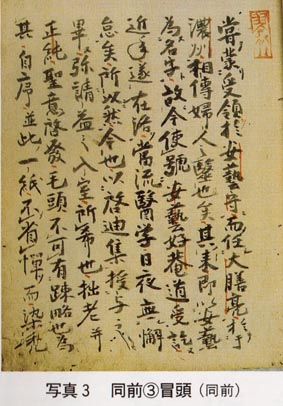 業受領於安藝守而任大膳亮於
濃州相傳婦人之醫也矣其末即以安藝
為名字故令使號安藝好菴道受訖
近年遂在洛當流醫学日夜無懈
怠矣所以然今也以啓迪集授与之
畢弥請益之入室所希也拙老并
正純聖意啓發毛頭不可有疎略也為
其自序並此一紙不省憚而染
写真3　同前③冒頭（同前）